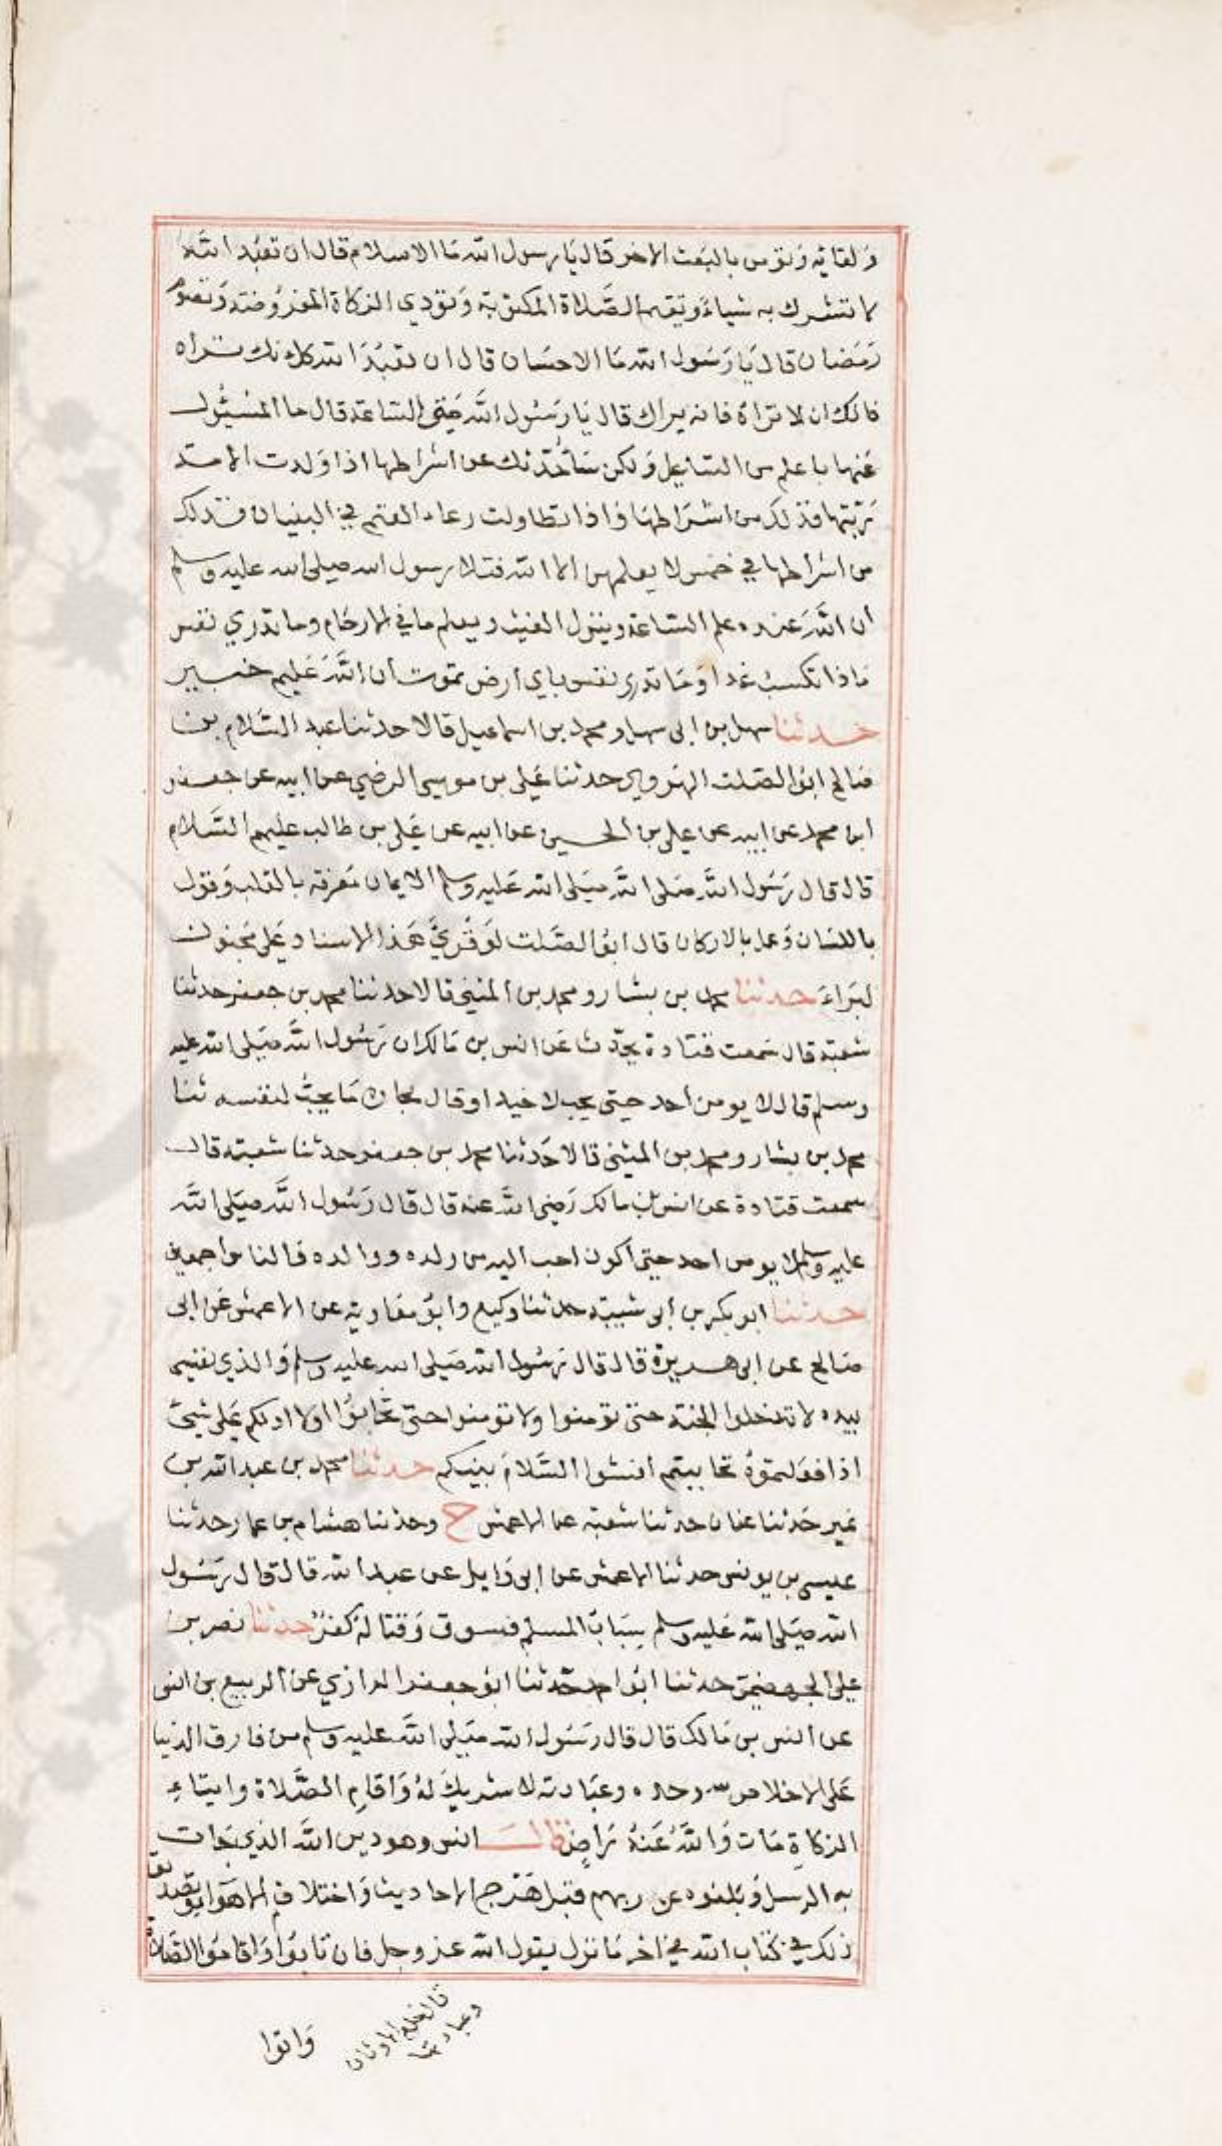 ولقائه وتؤمن بالبعث الاخر قال يا رسول الله ما الاسلام قال ان تعبد الله
لا تشرك به شياء وتقيم الصلاة المكتوبة وتؤدي الزكاة المفروضة وتصوم
رمضان قال يا رسول الله ما الاحسان قال ان تعبد الله كانك تراه
فانك ان لا تراه فانه يراك قال يا رسول الله متى الساعة قال ما المسئول
عنها باعلم من السائل ولكن ساحدثك عن اشراطها اذا ولدت الامة
ربتها فذلك من اشراطها واذا تطاولت رعاء الغنم في البنيان فذلك
من اشراطها في خمس لا يعلمهن الا الله فتلا رسول الله صلى الله عليه وسلم
ان الله عنده علم الساعة وينزل الغيث ويعلم ما في الارحام وما تدري نفس
ماذا تكسب غدا وما تدري نفس باي ارض تموت ان الله عليم خبير
حدثنا سهل بن ابى سهل ومحمد بن اسماعيل قالا حدثنا عبد السلام بن
صالح ابو الصلت الهروي حدثنا علي بن موسى الرضي عن ابيه عن جعفر
ابن محمد عن ابيه عن علي بن الحسين عن ابيه عن علي بن طالب عليهم السلام
قال قال رسول الله صلى الله صلى الله عليه وسلم الايمان معرفة بالقلب وقول
باللسان وعمل بالاركان قال ابو الصلت لو قرئ هذا الاسناد على مجنون
لبراء حدثنا محمد بن بشار ومحمد بن المثنى قالا حدثنا محمد بن جعفر حدثنا
شعبة قال سمعت قتادة يحدث عن انس بن مالك ان رسول الله صلى الله عليه
وسلم قال لا يومن احد حتى يحب لاخيه او قال لجاره ما يحب لنفسه ثنا
محمد بن بشار ومحمد بن المثنى قالا حدثنا محمد بن جعفر حدثنا شعبة قال
سمعت قتادة عن انس بن مالك رضي الله عنه قال قال رسول الله صلى الله
عليه وسلم لا يومن احد حتى اكون احب اليه من ولده ووالده والناس اجمعين
حدثنا ابو بكر بن ابى شيبة حدثنا وكيع وابو معاوية عن الاعمش عن ابى
صالح عن ابى هريرة قال قال رسول الله صلى الله عليه وسلم والذي نفسي
بيده لا تدخلوا الجنة حتى تومنوا ولا تومنوا حتى تحابوا اولا ادلكم على شئ
اذا فعلتموه تحاببتم افشوا السلام بينكم حدثنا محمد بن عبد الله بن
نمير حدثنا عفان حدثنا شعبة عن الاعمش ح وحدثنا هشام بن عمار حدثنا
عيسى بن يونس حدثنا الاعمش عن ابى وايل عن عبد الله قال قال رسول
الله صلى الله عليه وسلم سباب المسلم فسوق وقتاله كفر حدثنا نصر بن
علي الجهضمي حدثنا ابو احمد حدثنا ابو جعفر الرازي عن الربيع بن انس
عن انس بن مالك قال قال رسول الله صلى الله عليه وسلم من فارق الدنيا
على الاخلاص لله وحده وعبادته لا شريك له واقام الصلاة وايتاء
الزكاة مات والله عنه راض قال انس وهو دين الله الذي جات
به الرسل وبلغوه عن ربهم قبل هرج الاحاديث واختلاف الاهواء وتصديق
ذلك في كتاب الله في اخر ما نزل يقول الله عز وجل فان تابوا واقاموا الصلاة
قال خلع الاوثان
وعبادتها
واتوا